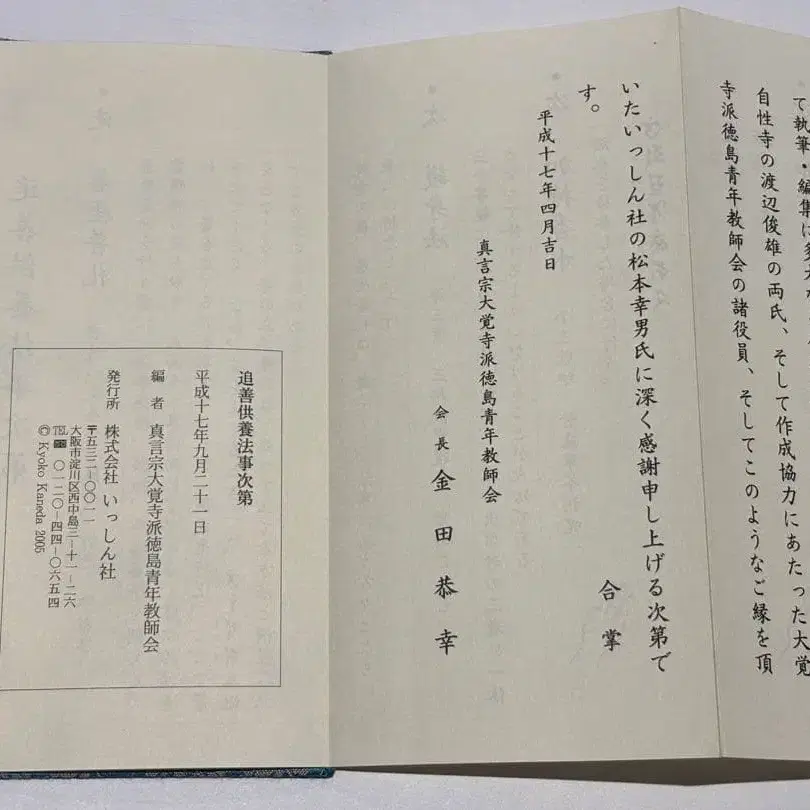 て執筆・編集に多大な
自性寺の渡辺俊雄の両氏、そして作成協力にあたった大覚
寺派徳島青年教師会の諸役員、そしてこのようなご縁を頂
いたいっしん社の松本幸男氏に深く感謝申し上げる次第で
す。
合掌
平成十七年四月吉日
真言宗大覚寺派徳島青年教師会
会長 金田恭幸
追善供養法事次第
平成十七年九月二十一日
編者 真言宗大覚寺派徳島青年教師会
発行所 株式会社 いっしん社
〒五三二-〇〇一一
大阪市淀川区西中島三-十一-二六
TEL 〇一二〇-四四-〇六五四
© Kyoko Kaneda 2005